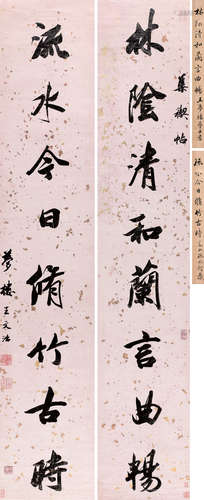 林陰清和蘭言曲暢
集禊帖
流水今日脩竹古時
夢樓王文治